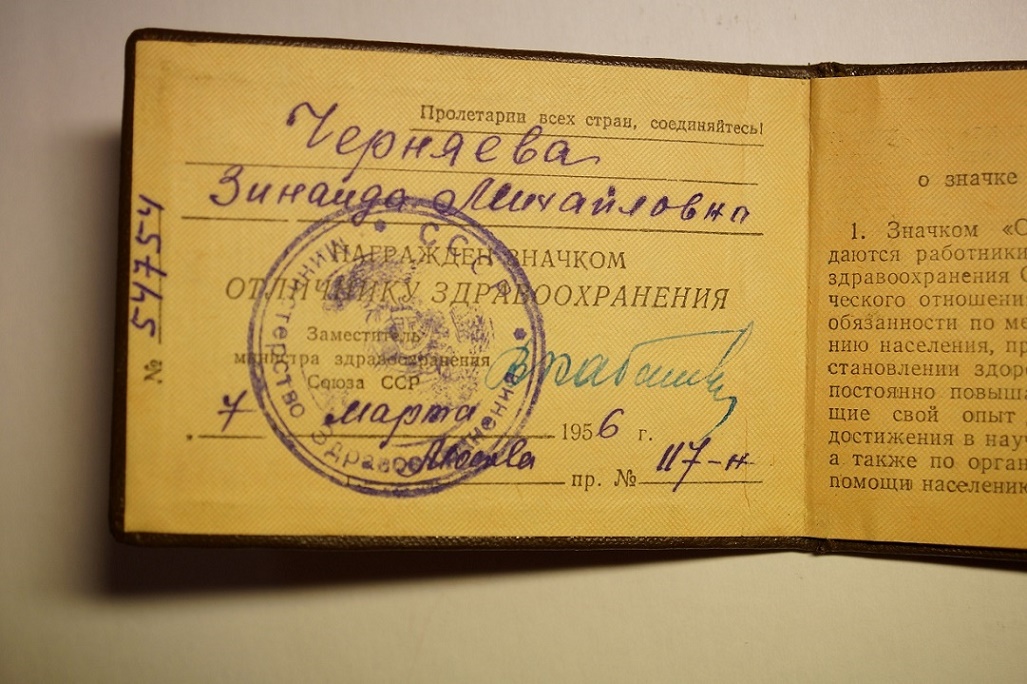 Пролетарии всех стран, соединяйтесь!
Черняева
Зинаида Михайловна
НАГРАЖДЕН ЗНАЧКОМ
ОТЛИЧНИКУ ЗДРАВООХРАНЕНИЯ
Заместитель
министра здравоохранения
Союза ССР
7 марта 1956 г.
Москва пр. № 117-н
№ 54754
Министерство Здравоохранения СССР
о значке
1. Значком «О
даются работники
здравоохранения С
ческого отношени
обязанности по ме
нию населения, пр
становлении здоро
постоянно повыша
щие свой опыт
достижения в науч
а также по орган
помощи населению